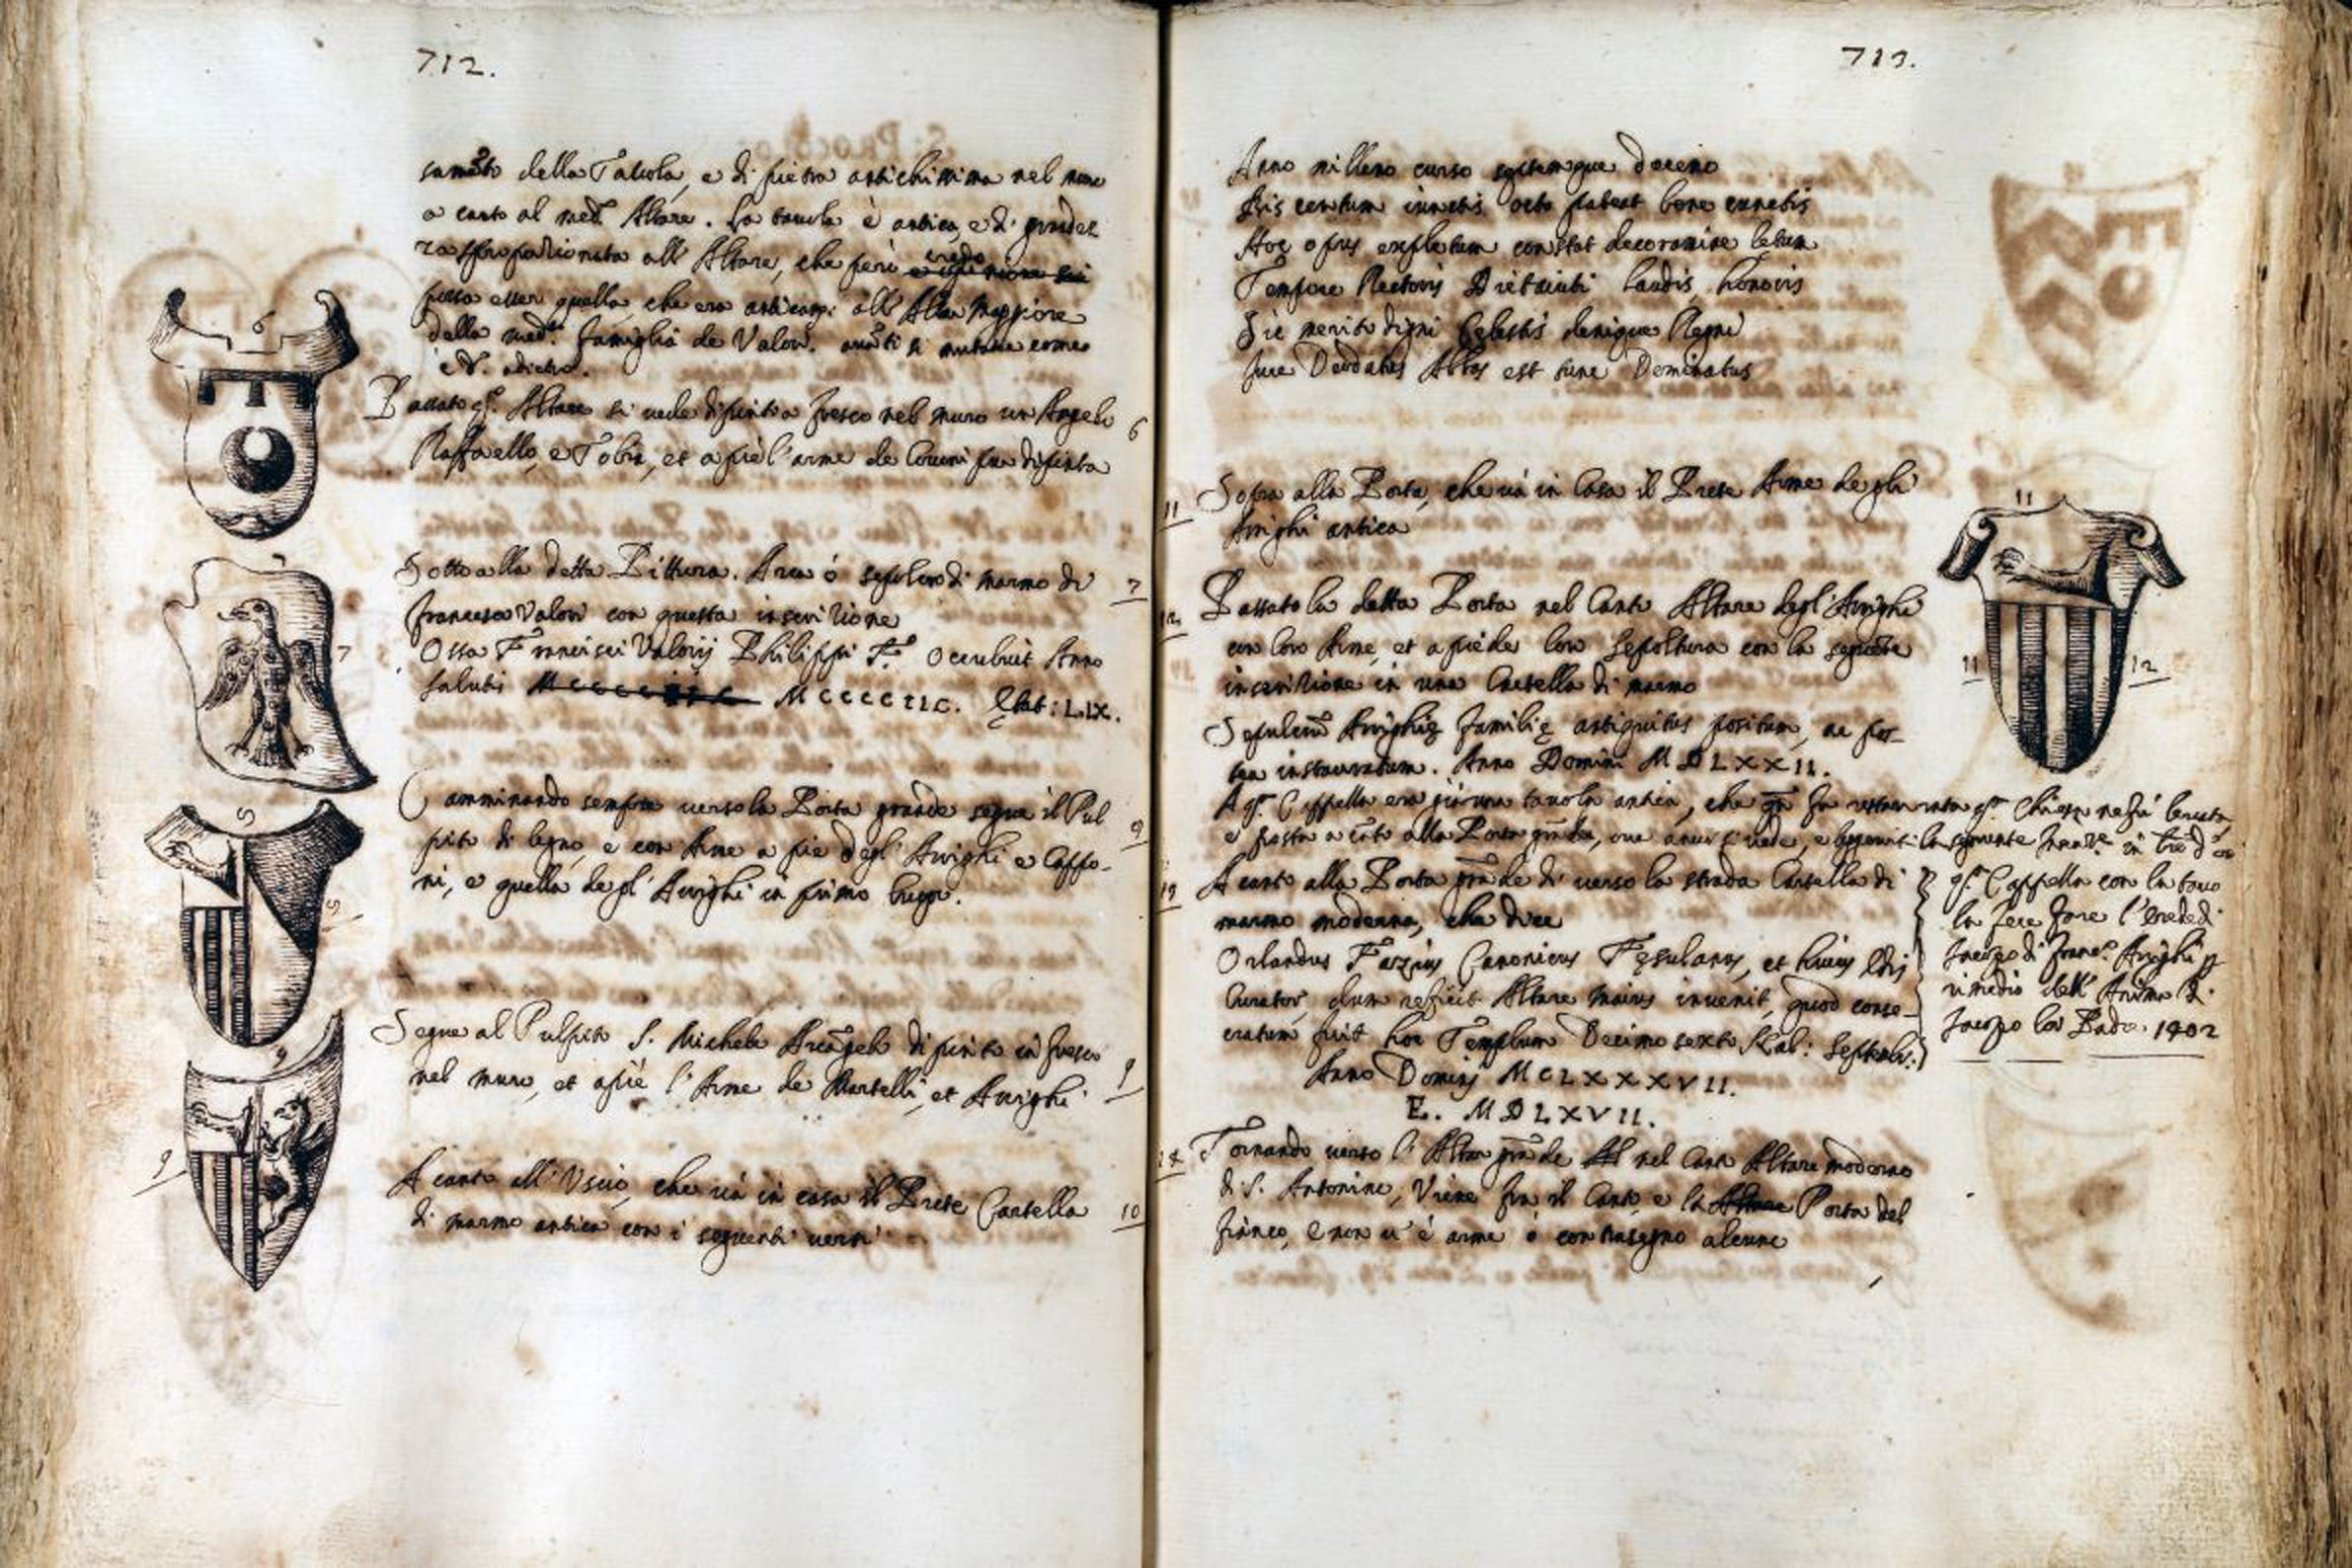 712.
della Tavola, e di pietra antichissima nel muro
a canto al med.º Altare. La tavola è antica, e di grandez
za sproporzionata all' Altare, che però credo
possa esser quella, che era anticam: all' Altar Maggiore
della med.ª famiglia de Valori. avãti si mutasse come
adietro.
Passato q.º Altare si vede dipinto a fresco nel muro un Angelo
Raffaello, e Tobia, et a piè l'arme de pur dipinta
6
6
Sotto alla detta Pittura. Arca ò sepolcro di marmo di
francesco Valori con questa inscrizione
Ossa Francisci Valorij Philippi F. Occubuit Anno
Saluti MCCCCIIC. Ętat: LIX.
7
7
Camminando sempre verso la Porta grande segue il Pul
pito di legno, e con Arme a pie degl' Arrighi e Cappo-
ni, e quella degl' Arrighi in primo luogo.
Segue al Pulpito S. Michele Arcãgelo dipinto in fresco
nel muro, et a piè l'Arme de Martelli, et Arrighi
9
9
A canto all' Uscio, che và in casa il Prete Cartella
di marmo antica con i seguenti versi
10
713.
Anno milleno curso septemque deceno
Bis centum iunctis octo pateat bene cunctis
Hoc opus expletum constat decoramine letum
Tempore Rectoris laudis, honoris
Sic merito digni Celestis denique Regni
Iure Deodatus Abbas est tunc Dominatus
11 Sopra alla Porta, che và in Casa il Prete Arme degli
Arrighi antica
11
11
12
12 Passato la detta Porta nel Canto Altare degl'Arrighi
con loro Arme, et a piede lor Sepoltura con la seguẽte
inscrizione in una Cartella di marmo
Sepulcrũ Arrighię Familię antiquitus positum, ac pos-
tea instauratum. Anno Domini MDLXXII.
A q.ª Cappella era già una tavola antica, che fu restaurata q.ª Chiesa ne fù levata
e posta a cãto alla Porta grãde, ove ancor si vede, e la seguente in
13 A canto alla Porta grãde di verso la strada Cartella di
marmo moderna, che dice
Orlandus Canonicus Fęsulanus, et huius Ędis
Curator, dum reficit Altare maius invenit, quod conse-
cratum fuit hoc Templum Decimo sexto Kal: Septẽbr:
Anno Domini MCLXXXVII.
E. MDLXVII.
q.ª Cappella con la tavo
la fece fare l'erede di
Iacopo di Franc.º Arrighi p
rimedio dell' Anima d.
Iacopo lor Padre. 1402
14 Tornando verso l'Altar grãde nel Canto Altare moderno
di S. Antonino, Viene fra il Canto, e la Porta del
fianco, e non v'è arme ò contrasegno alcuno